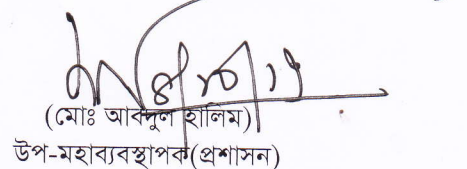 (মোঃ আবদুল হালিম)
উপ-মহাব্যবস্থাপক(প্রশাসন)